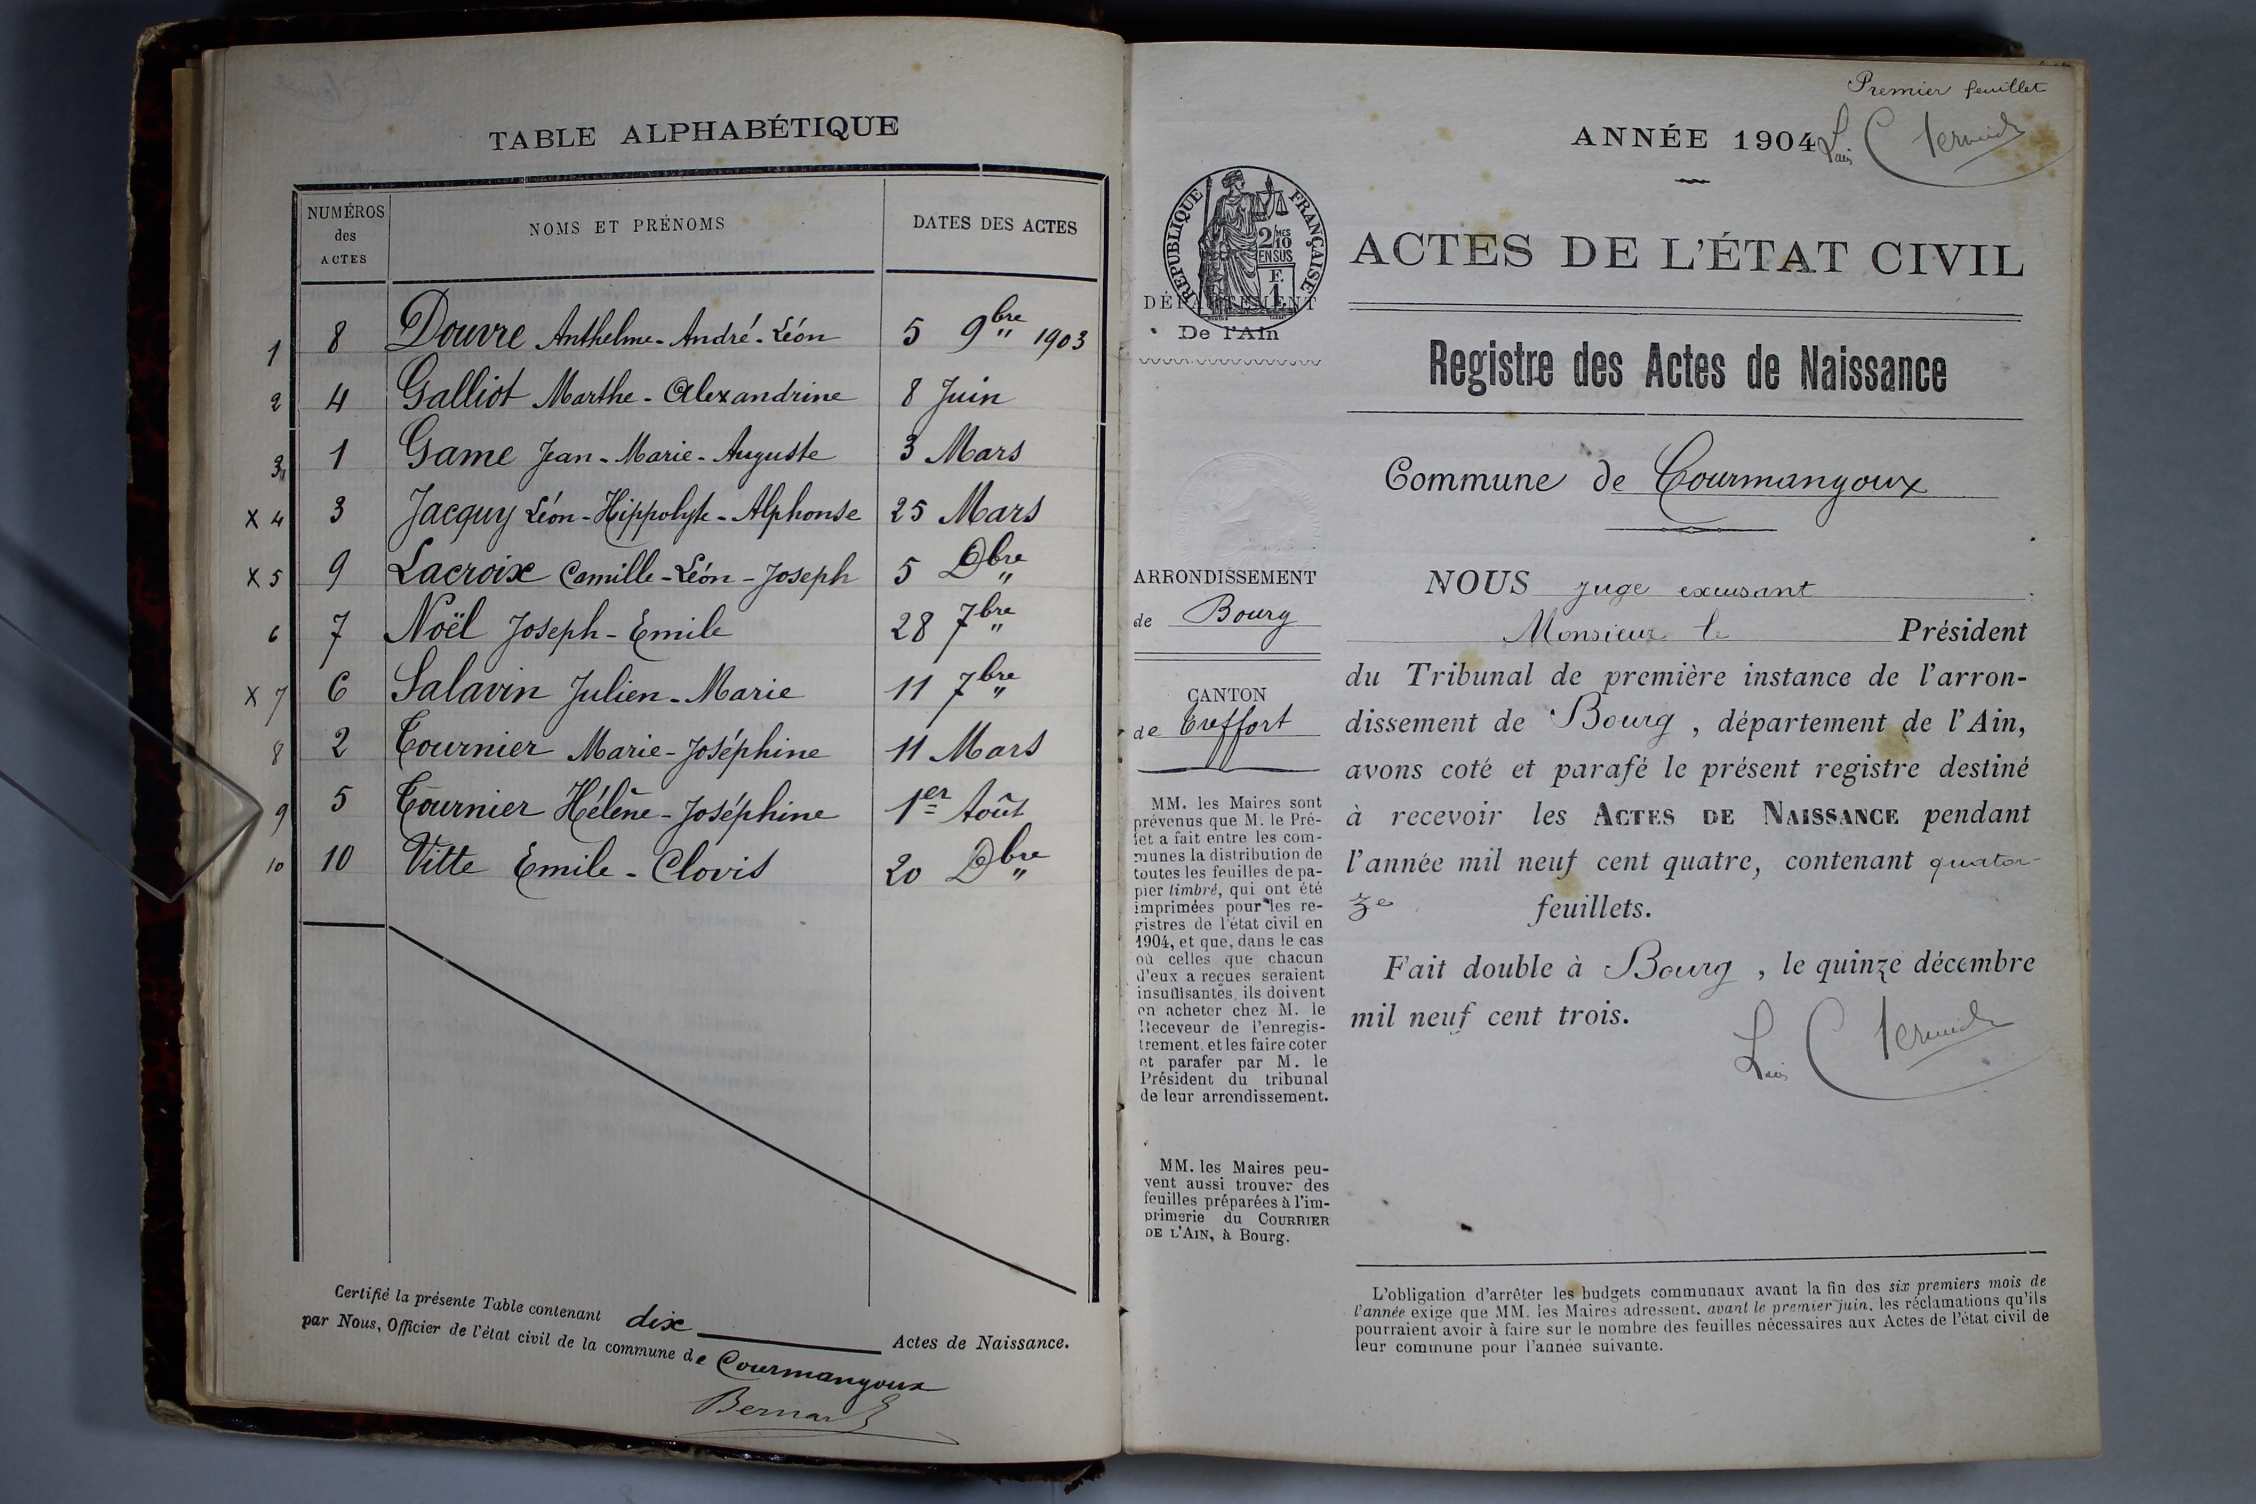 TABLE ALPHABÉTIQUE
NUMÉROS des ACTES NOMS ET PRÉNOMS DATES DES ACTES
1 8 Douvre Anthelme-André-Léon 5 9bre " 1903
2 4 Galliot Marthe-Alexandrine 8 Juin
3 1 Game Jean-Marie-Auguste 3 Mars
X 4 3 Jacquy Léon-Hippolyte-Alphonse 25 Mars
X 5 9 Lacroix Camille-Léon-Joseph 5 Dbre "
6 7 Noël Joseph-Emile 28 7bre "
X 7 6 Salavin Julien-Marie 11 7bre "
8 2 Tournier Marie-Joséphine 11 Mars
9 5 Tournier Hélène-Joséphine 1er Août
10 10 Vitte Emile-Clovis 20 Dbre "
Certifié la présente Table contenant dix Actes de Naissance.
par Nous, Officier de l'état civil de la commune de Courmangoux
Bernard
Premier feuillet
ANNÉE 1904
RÉPUBLIQUE FRANÇAISE
2/10 MES
EN SUS
F.
1
DÉPARTEMENT
De l'Ain
ACTES DE L'ÉTAT CIVIL
Registre des Actes de Naissance
Commune de Courmangoux
ARRONDISSEMENT
de Bourg
CANTON
de Treffort
MM. les Maires sont
prévenus que M. le Pré-
fet a fait entre les com-
munes la distribution de
toutes les feuilles de pa-
pier timbré, qui ont été
imprimées pour les re-
gistres de l'état civil en
1904, et que, dans le cas
où celles que chacun
d'eux a reçues seraient
insuffisantes, ils doivent
en acheter chez M. le
Receveur de l'enregis-
trement, et les faire coter
et parafer par M. le
Président du tribunal
de leur arrondissement.
MM. les Maires peu-
vent aussi trouver des
feuilles préparées à l'im-
primerie du COURRIER
DE L'AIN, à Bourg.
NOUS juge excusant
Monsieur le Président
du Tribunal de première instance de l'arron-
dissement de Bourg, département de l'Ain,
avons coté et parafé le présent registre destiné
à recevoir les ACTES DE NAISSANCE pendant
l'année mil neuf cent quatre, contenant quator-
ze feuillets.
Fait double à Bourg, le quinze décembre
mil neuf cent trois.
L'obligation d'arrêter les budgets communaux avant la fin des six premiers mois de
l'année exige que MM. les Maires adressent, avant le premier juin, les réclamations qu'ils
pourraient avoir à faire sur le nombre des feuilles nécessaires aux Actes de l'état civil de
leur commune pour l'année suivante.